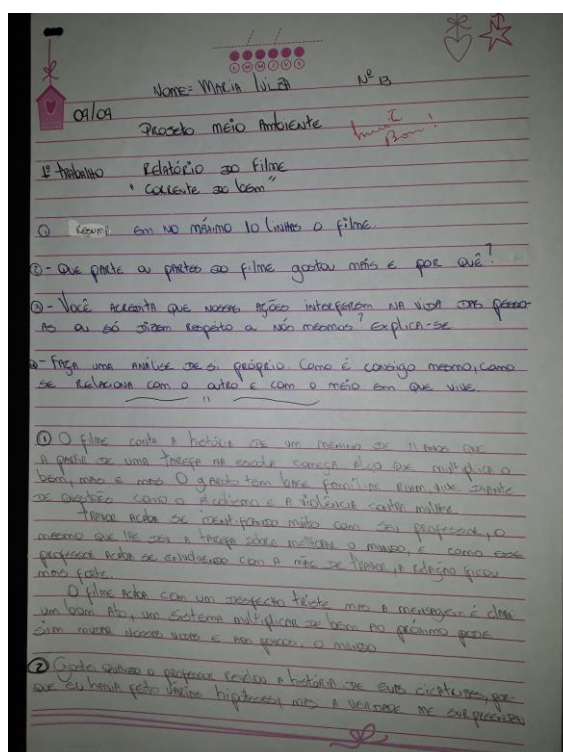 D S T Q Q S S
Nome= Maria Luiza Nº 13
09/09
Projeto meio Ambiente
muito Bom!
1º trabalho Relatório do Filme
"Corrente do bem"
① Resump em no máximo 10 linhas o filme.
②- Que parte ou partes do filme gostou mais e por quê?
③- Você acredita que nossas ações interferem na vida das pesso-
as ou só dizem respeito a nós mesmos? Explica-se
④- Faça uma análise de si próprio. Como é consigo mesmo, como
se relaciona com o outro e com o meio em que vive.
① O filme conta a história de um menino de 11 anos que
a partir de uma tarefa na escola começa algo que multiplica o
bem, mas e mas O garoto tem base familiar ruim, vive diante
de questão como o alcolismo e a violência contra mulher.
Trevor acaba se identificando muito com seu professor, o
mesmo que lhe deu a tarefa sobre melhorar o mundo, e como esse
professor acaba se envolvendo com a mãe de Trevor, a relação ficou
mais forte.
O filme acaba com um desfecho triste mas a mensagem é clara
um bom ato, um sistema multiplicar de bem ao próximo pode
sim mudar nossas vidas e aos poucos, o mundo
② Gostei quando o professor revelou a história de suas cicatrizes, por-
que eu havia feito várias hipóteses, mas a verdade me surpreendeu